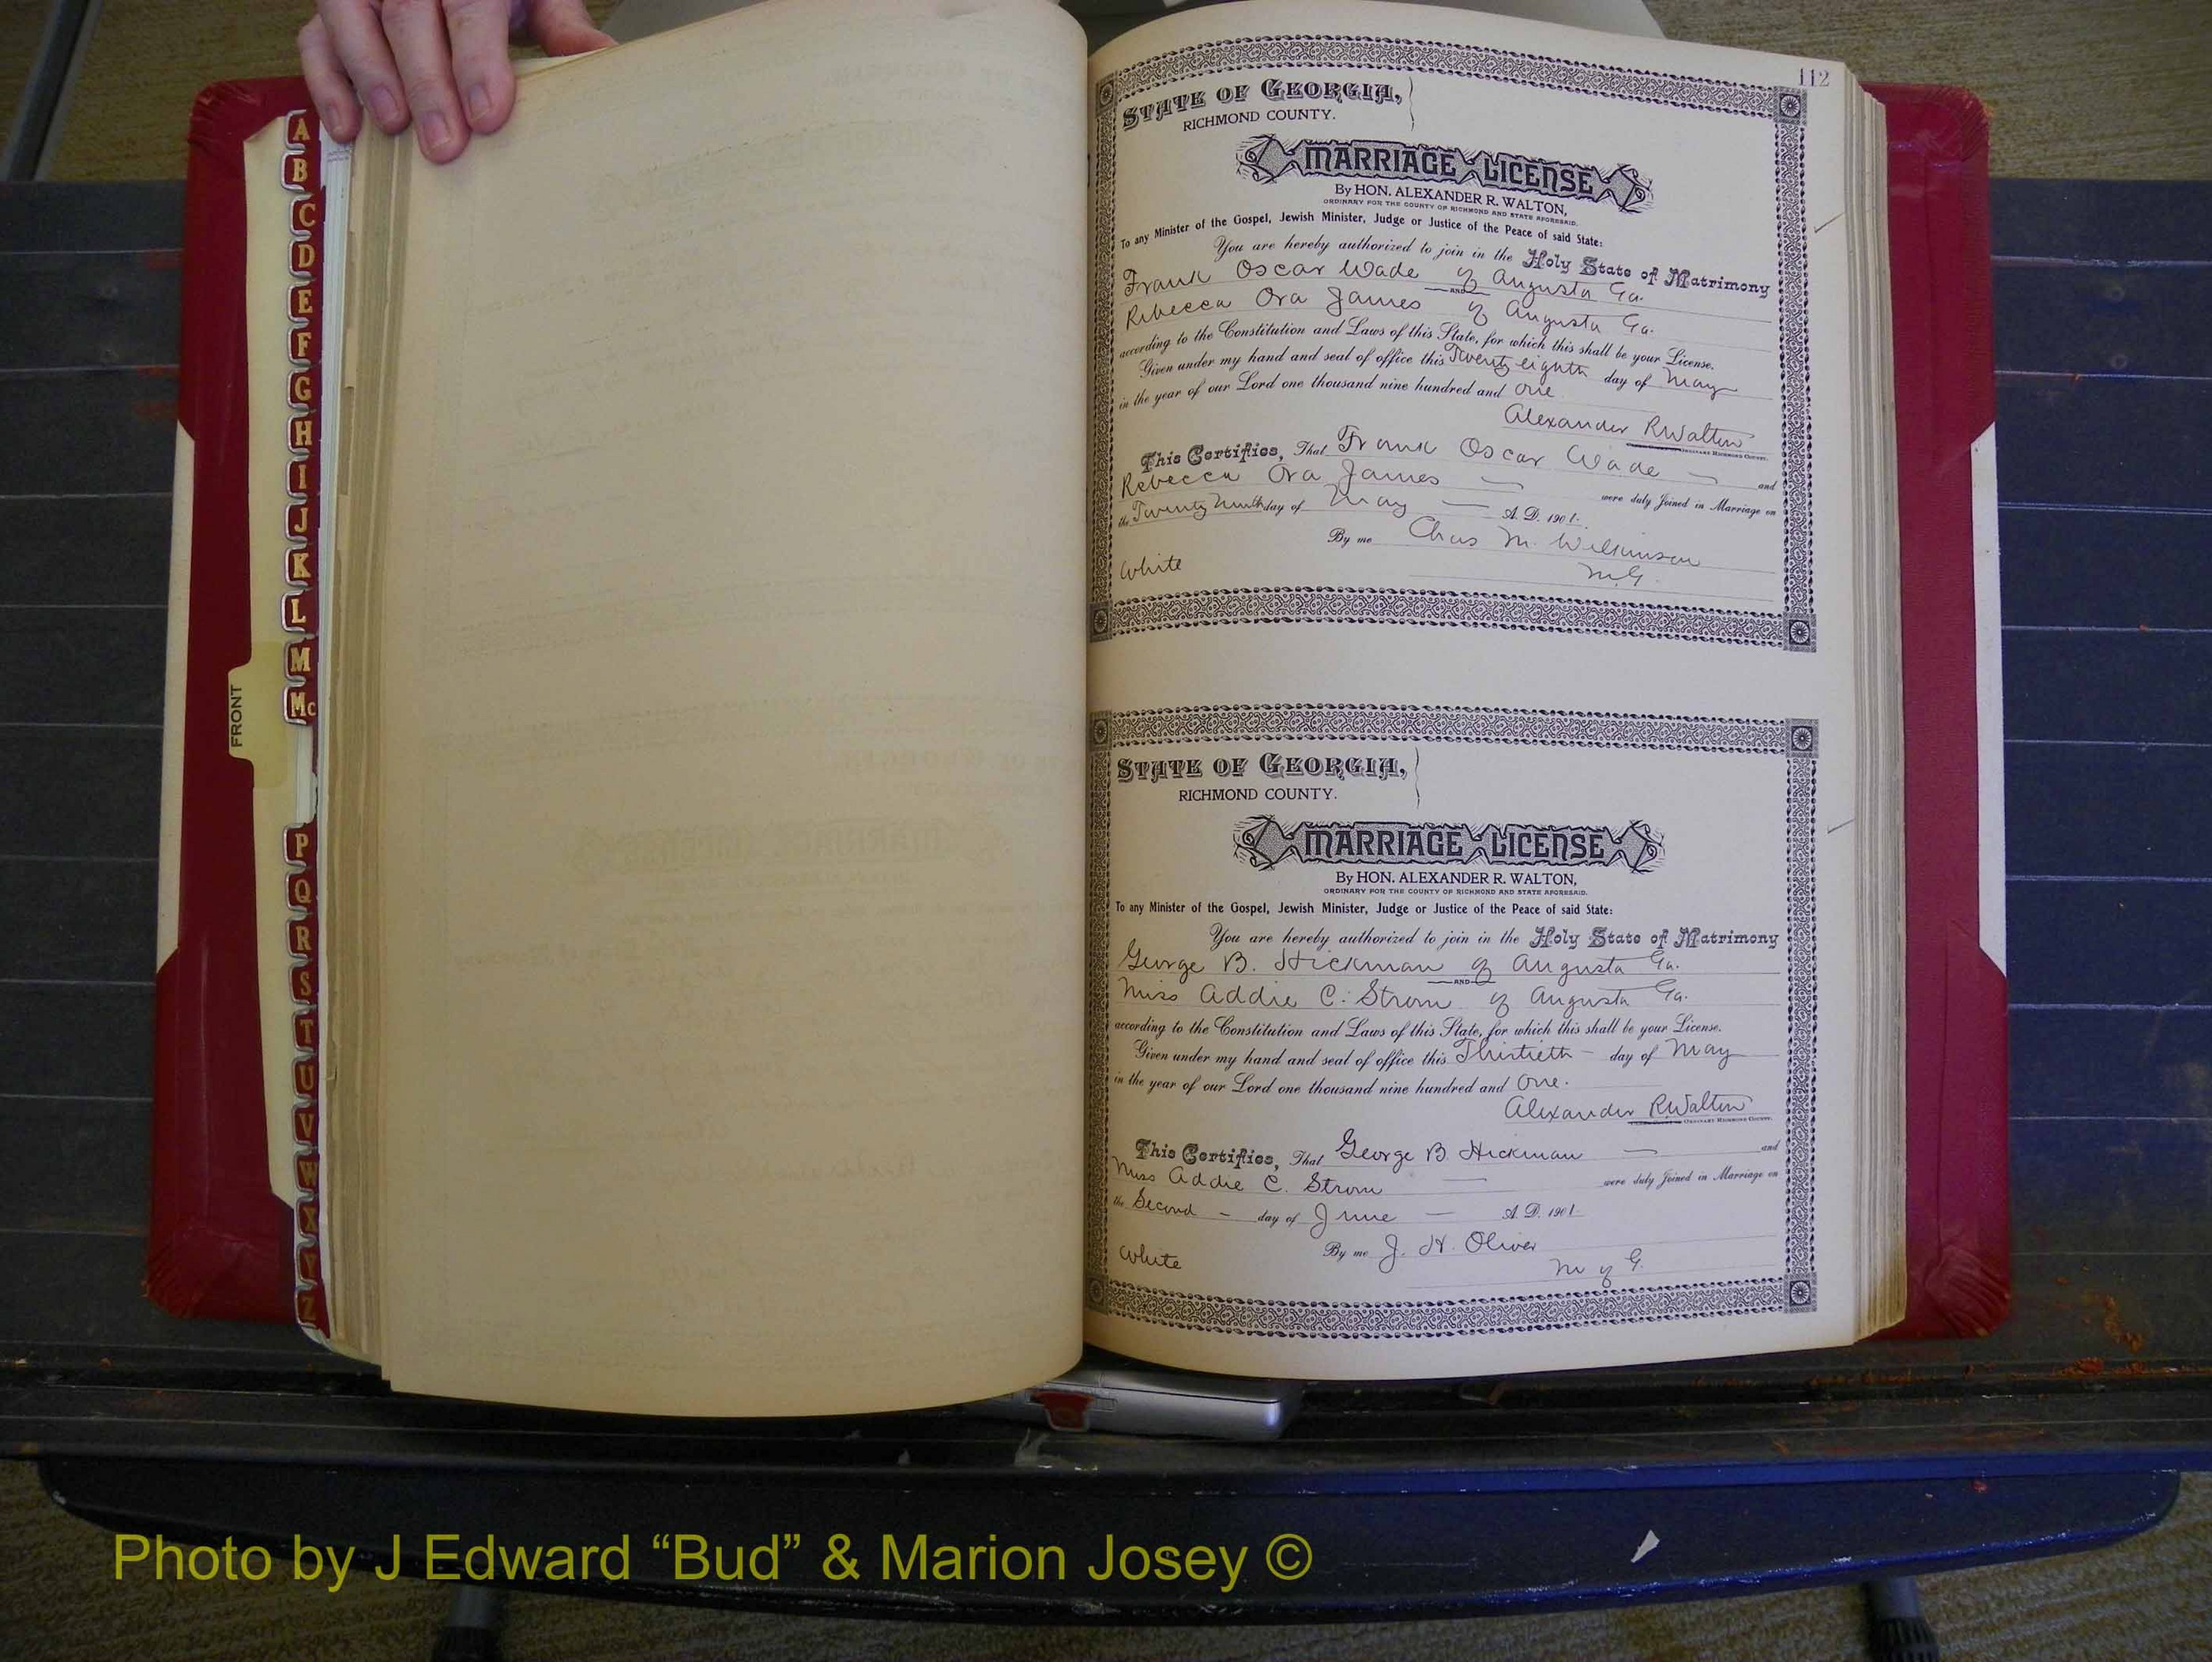 A
B
C
D
E
F
G
H
I
J
K
L
M
Mc
P
Q
R
S
T
U
V
W
X
Y
Z
FRONT
112
STATE OF GEORGIA,
RICHMOND COUNTY.
MARRIAGE LICENSE
By HON. ALEXANDER R. WALTON,
ORDINARY FOR THE COUNTY OF RICHMOND AND STATE AFORESAID.
To any Minister of the Gospel, Jewish Minister, Judge or Justice of the Peace of said State:
You are hereby authorized to join in the Holy State of Matrimony
Frank Oscar Wade of Augusta Ga.
AND
Rebecca Ora James of Augusta Ga.
according to the Constitution and Laws of this State, for which this shall be your License.
Given under my hand and seal of office this Twenty eighth day of May
in the year of our Lord one thousand nine hundred and one
Alexander R Walton
ORDINARY RICHMOND COUNTY.
This Certifies, That Frank Oscar Wade — and
Rebecca Ora James — were duly Joined in Marriage on
the Twenty Ninth day of May — A. D. 1901.
By me Chas M. Wilkinson
White
M.G.
STATE OF GEORGIA,
RICHMOND COUNTY.
MARRIAGE LICENSE
By HON. ALEXANDER R. WALTON,
ORDINARY FOR THE COUNTY OF RICHMOND AND STATE AFORESAID.
To any Minister of the Gospel, Jewish Minister, Judge or Justice of the Peace of said State:
You are hereby authorized to join in the Holy State of Matrimony
George B. Hickman of Augusta Ga.
AND
Miss Addie C. Strom of Augusta Ga.
according to the Constitution and Laws of this State, for which this shall be your License.
Given under my hand and seal of office this Thirtieth — day of May
in the year of our Lord one thousand nine hundred and One.
Alexander R Walton
ORDINARY RICHMOND COUNTY.
This Certifies, That George B. Hickman — and
Miss Addie C. Strom — were duly Joined in Marriage on
the Second — day of June — A. D. 1901
By me J. H. Oliver
White
M of G.
Photo by J Edward “Bud” & Marion Josey ©